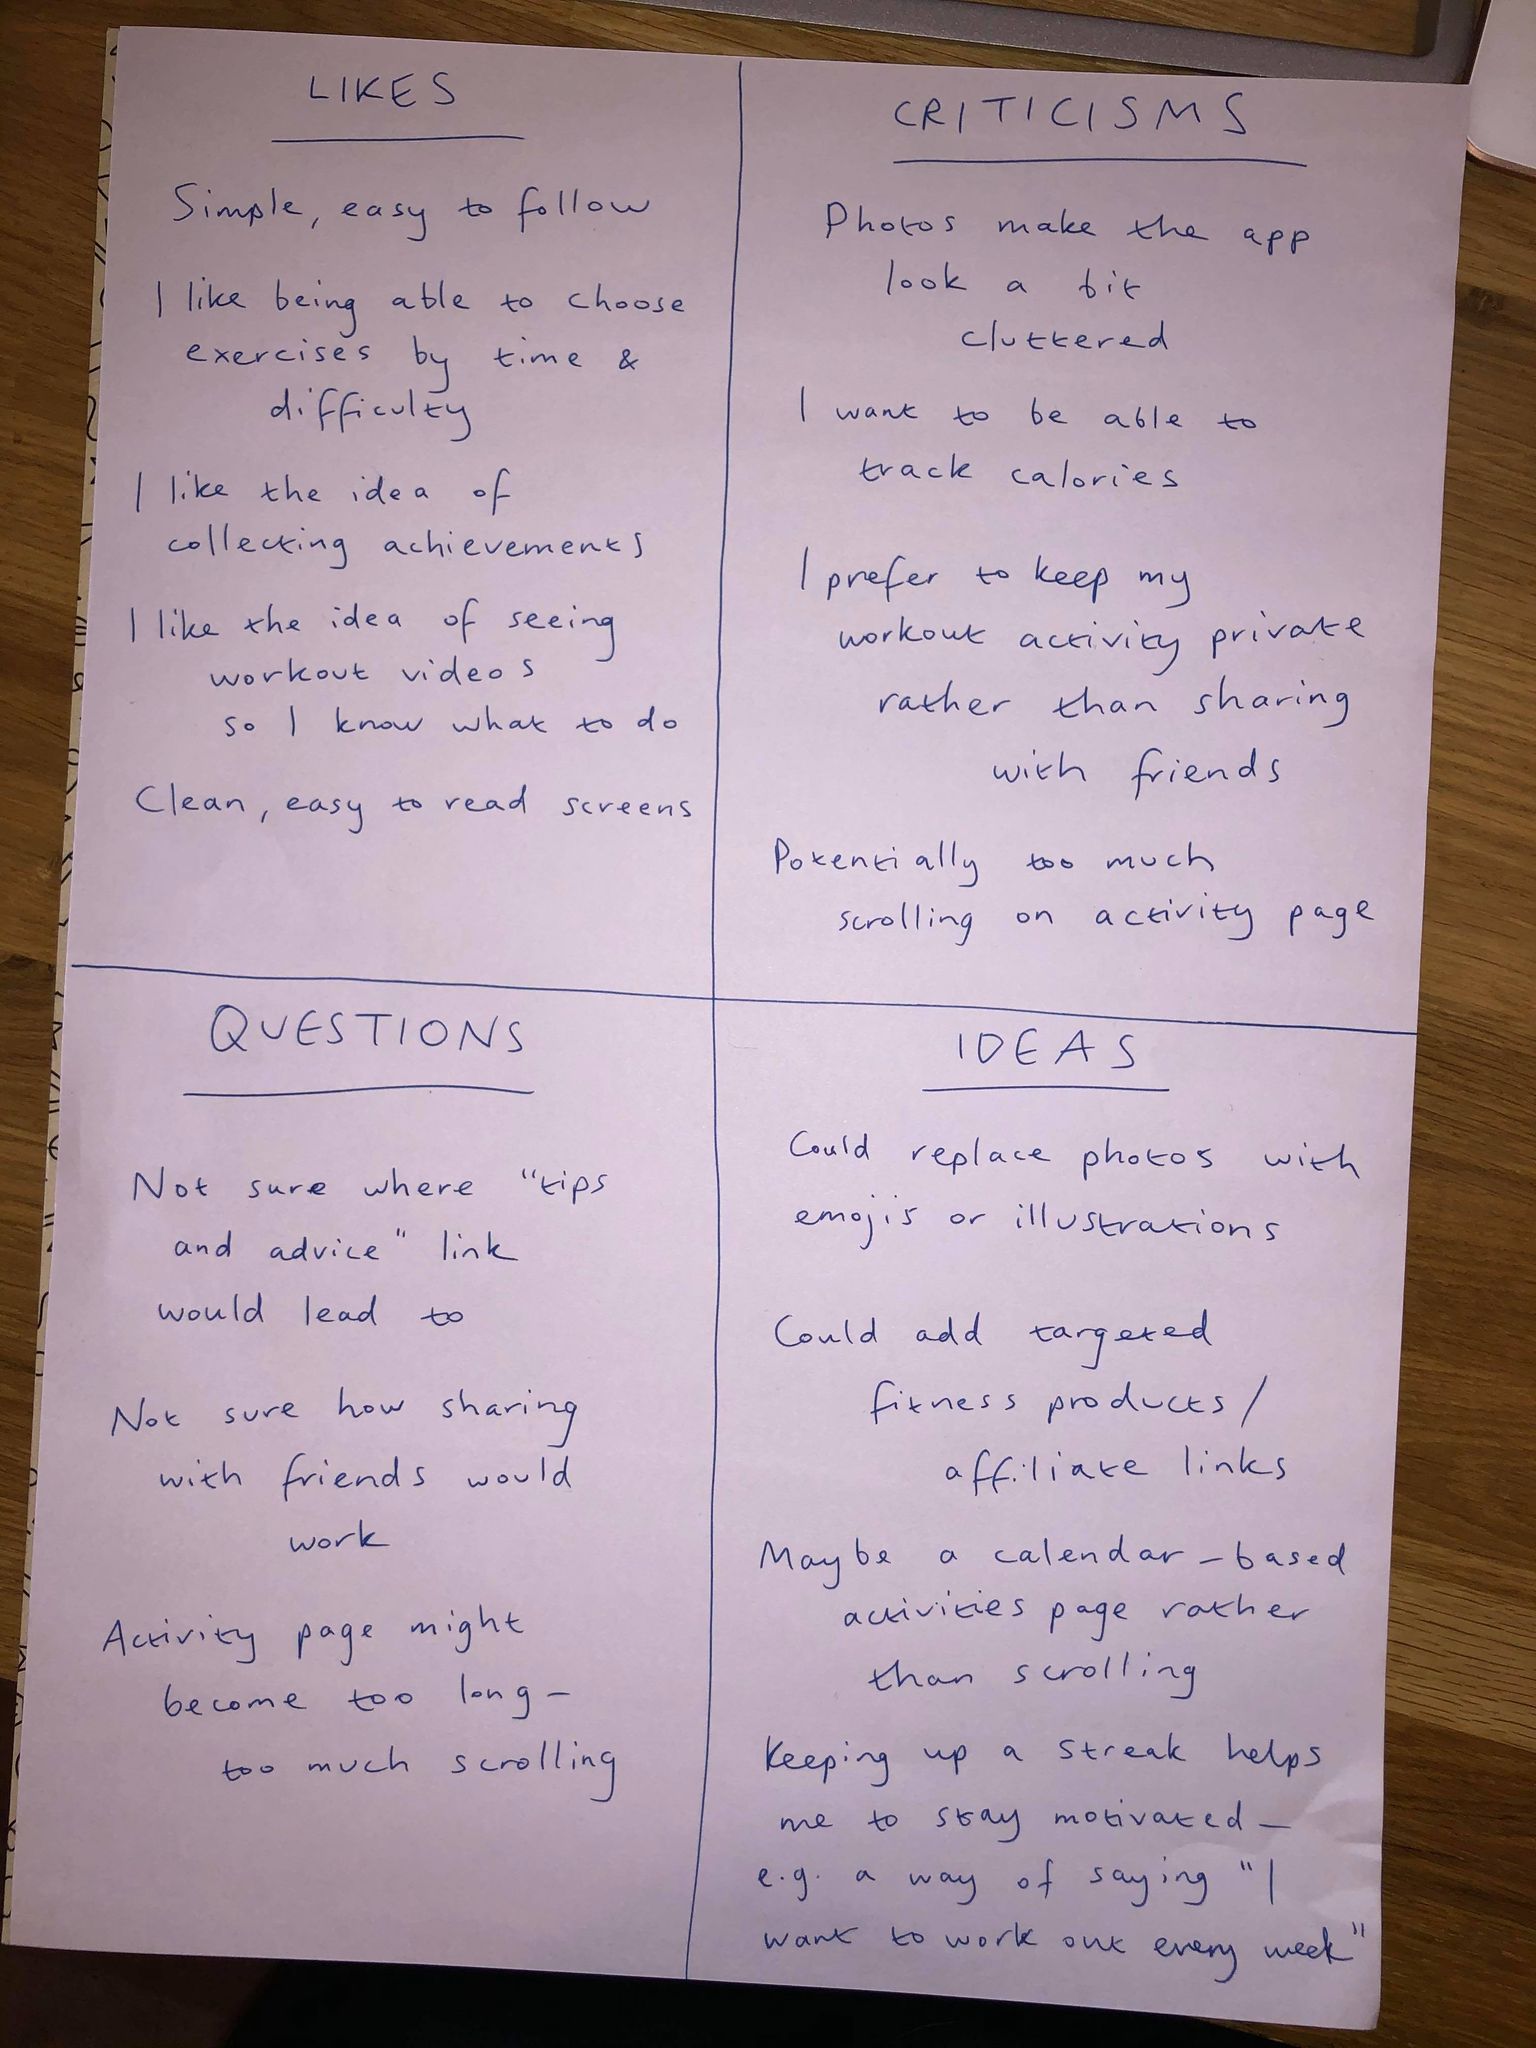 LIKES
Simple, easy to follow
I like being able to choose
exercises by time &
difficulty
I like the idea of
collecting achievements
I like the idea of seeing
workout videos
so I know what to do
Clean, easy to read screens
CRITICISMS
Photos make the app
look a bit
cluttered
I want to be able to
track calories
I prefer to keep my
workout activity private
rather than sharing
with friends
Potentially too much
scrolling on activity page
QUESTIONS
Not sure where "tips
and advice" link
would lead to
Not sure how sharing
with friends would
work
Activity page might
become too long -
too much scrolling
IDEAS
Could replace photos with
emojis or illustrations
Could add targeted
fitness products/
affiliate links
Maybe a calendar-based
activities page rather
than scrolling
Keeping up a streak helps
me to stay motivated -
e.g. a way of saying "I
want to work out every week"